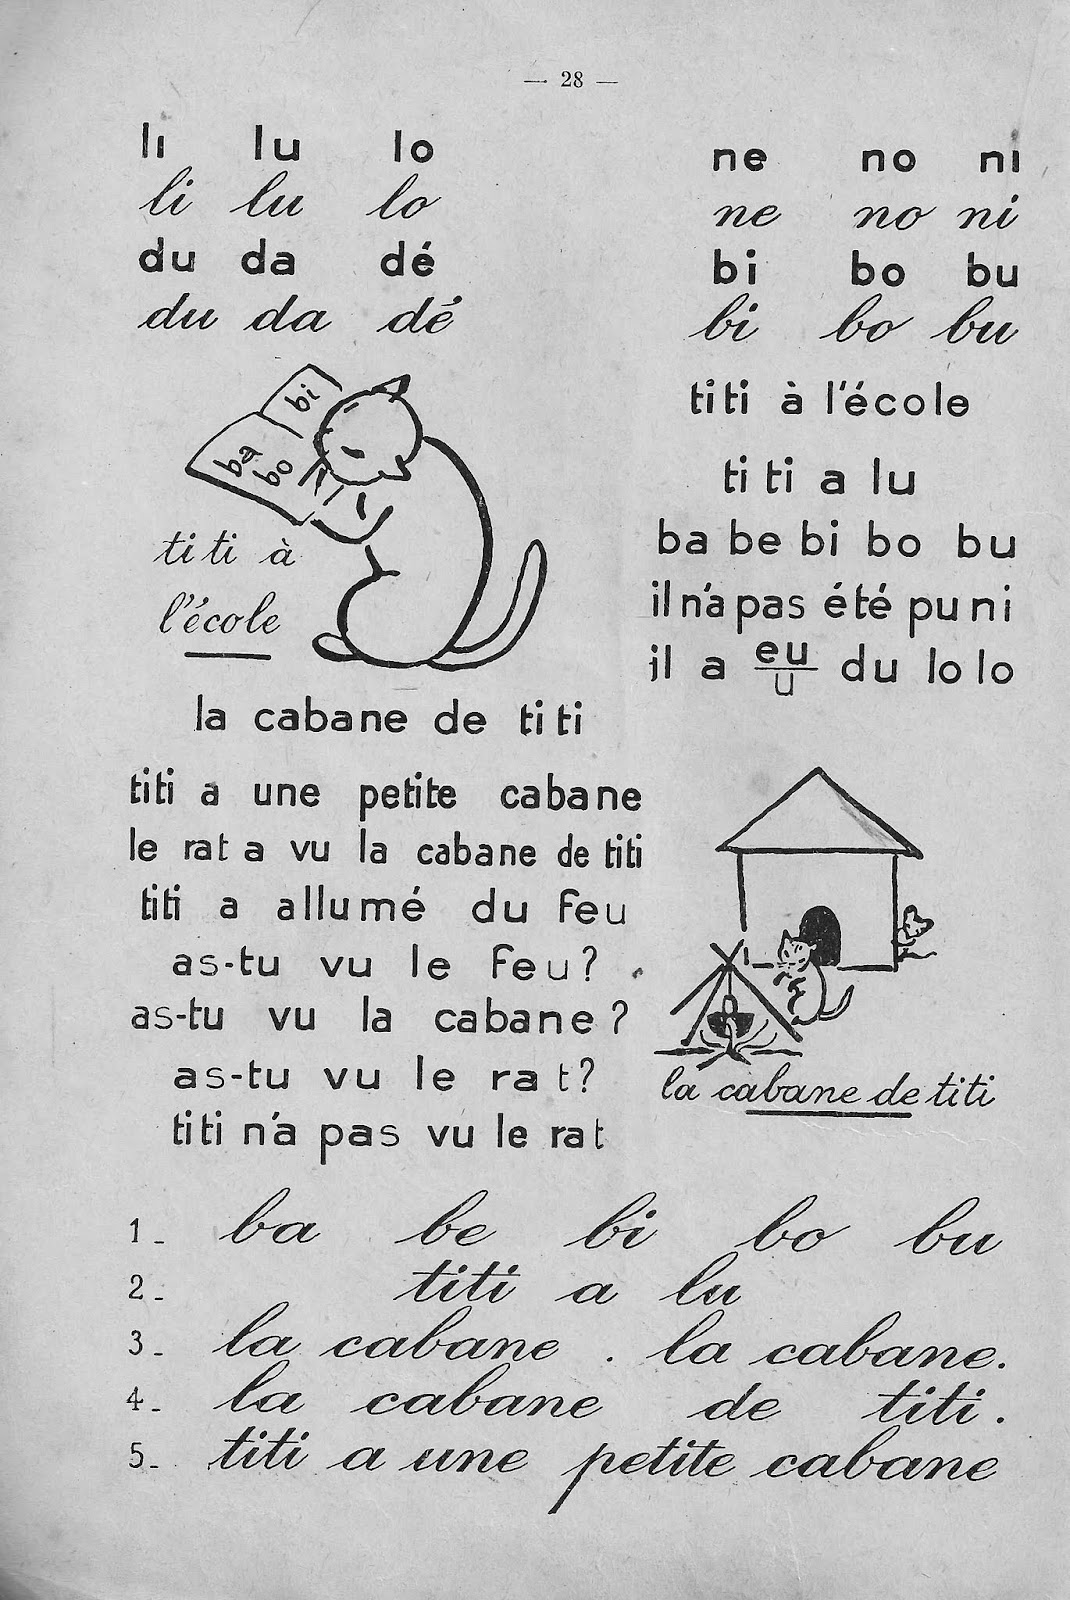 — 28 —
li lu lo
li lu lo
du da dé
du da dé
ne no ni
ne no ni
bi bo bu
bi bo bu
bi
ba
bo
titi à
l'école
titi à l'école
titi a lu
ba be bi bo bu
il n'a pas été puni
il a eu du lolo
u
la cabane de titi
titi a une petite cabane
le rat a vu la cabane de titi
titi a allumé du feu
as-tu vu le feu?
as-tu vu la cabane?
as-tu vu le rat?
titi n'a pas vu le rat
la cabane de titi
1_ ba be bi bo bu
2_ titi a lu
3_ la cabane . la cabane.
4_ la cabane de titi.
5_ titi a une petite cabane